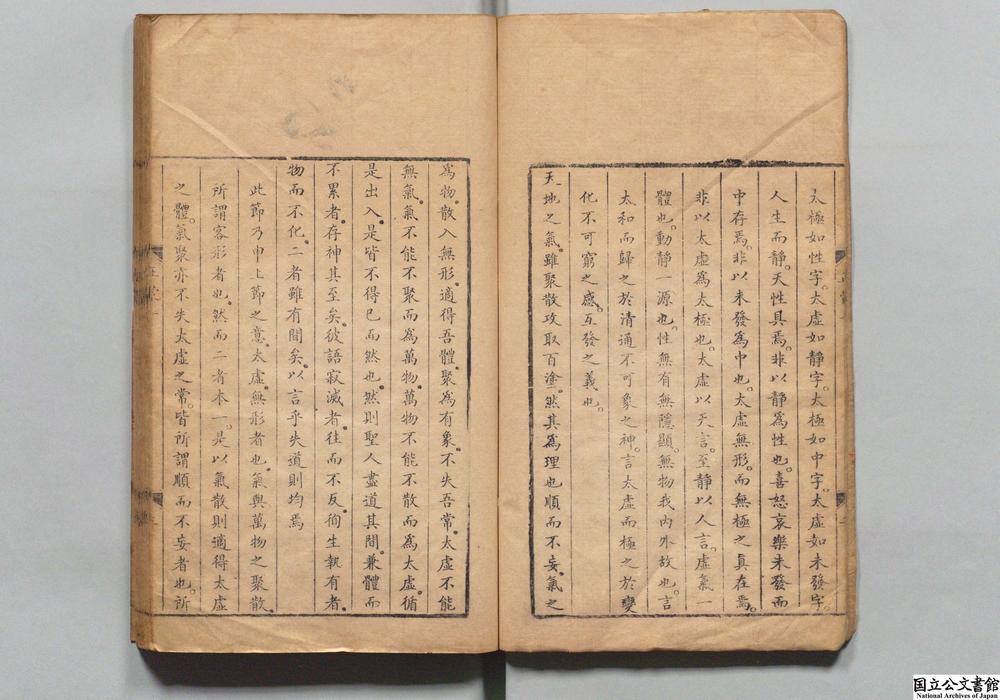 太極如性字。太虛如靜字。太極如中字。太虛如未發字。
人生而靜。天性具焉。非以靜爲性也。喜怒哀樂未發而
中存焉。非以未發爲中也。太虛無形。而無極之真在焉。
非以太虛爲太極也。太虛以天言。至靜以人言。虛氣一
體也。動靜一源也。性無有無隱顯。無物我內外故也。言
太和而歸之於清通不可象之神。言太虛而極之於變
化不可窮之感。互發之義也。
天地之氣。雖聚散攻取百塗。然其爲理也順而不妄。氣之
爲物。散入無形。適得吾體。聚爲有象。不失吾常。太虛不能
無氣。氣不能不聚而爲萬物。萬物不能不散而爲太虛。循
是出入。是皆不得已而然也。然則聖人盡道其間。兼體而
不累者。存神其至矣。彼語寂滅者。往而不反。徇生執有者。
物而不化。二者雖有間矣。以言乎失道則均焉
此節乃申上節之意。太虛。無形者也。氣與萬物之聚散。
所謂客形者也。然而二者本一。是以氣散則適得太虛
之體。氣聚亦不失太虛之常。皆所謂順而不妄者也。所
国立公文書館
National Archives of Japan